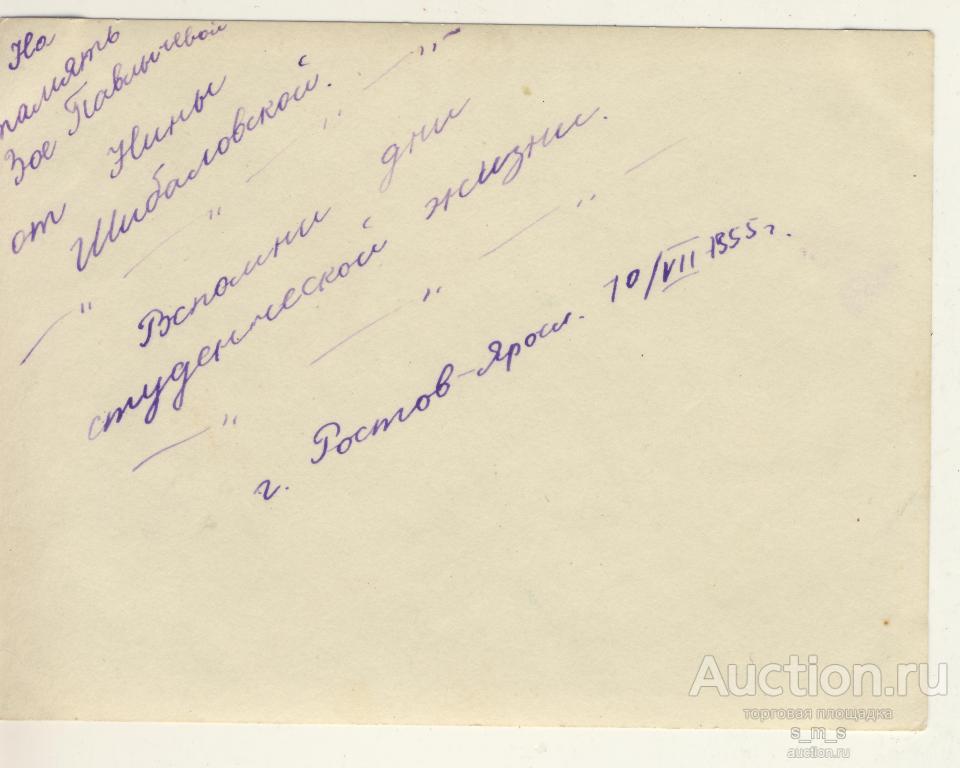 На
память
Зое Павлычевой
от Нины
Шибаловской.
— " — " — " —
Вспомни дни
студенческой жизни.
— " — " — " —
г. Ростов-Яросл. 10/VII 1955 г.
Auction.ru
торговая площадка
s_m_s
auction.ru